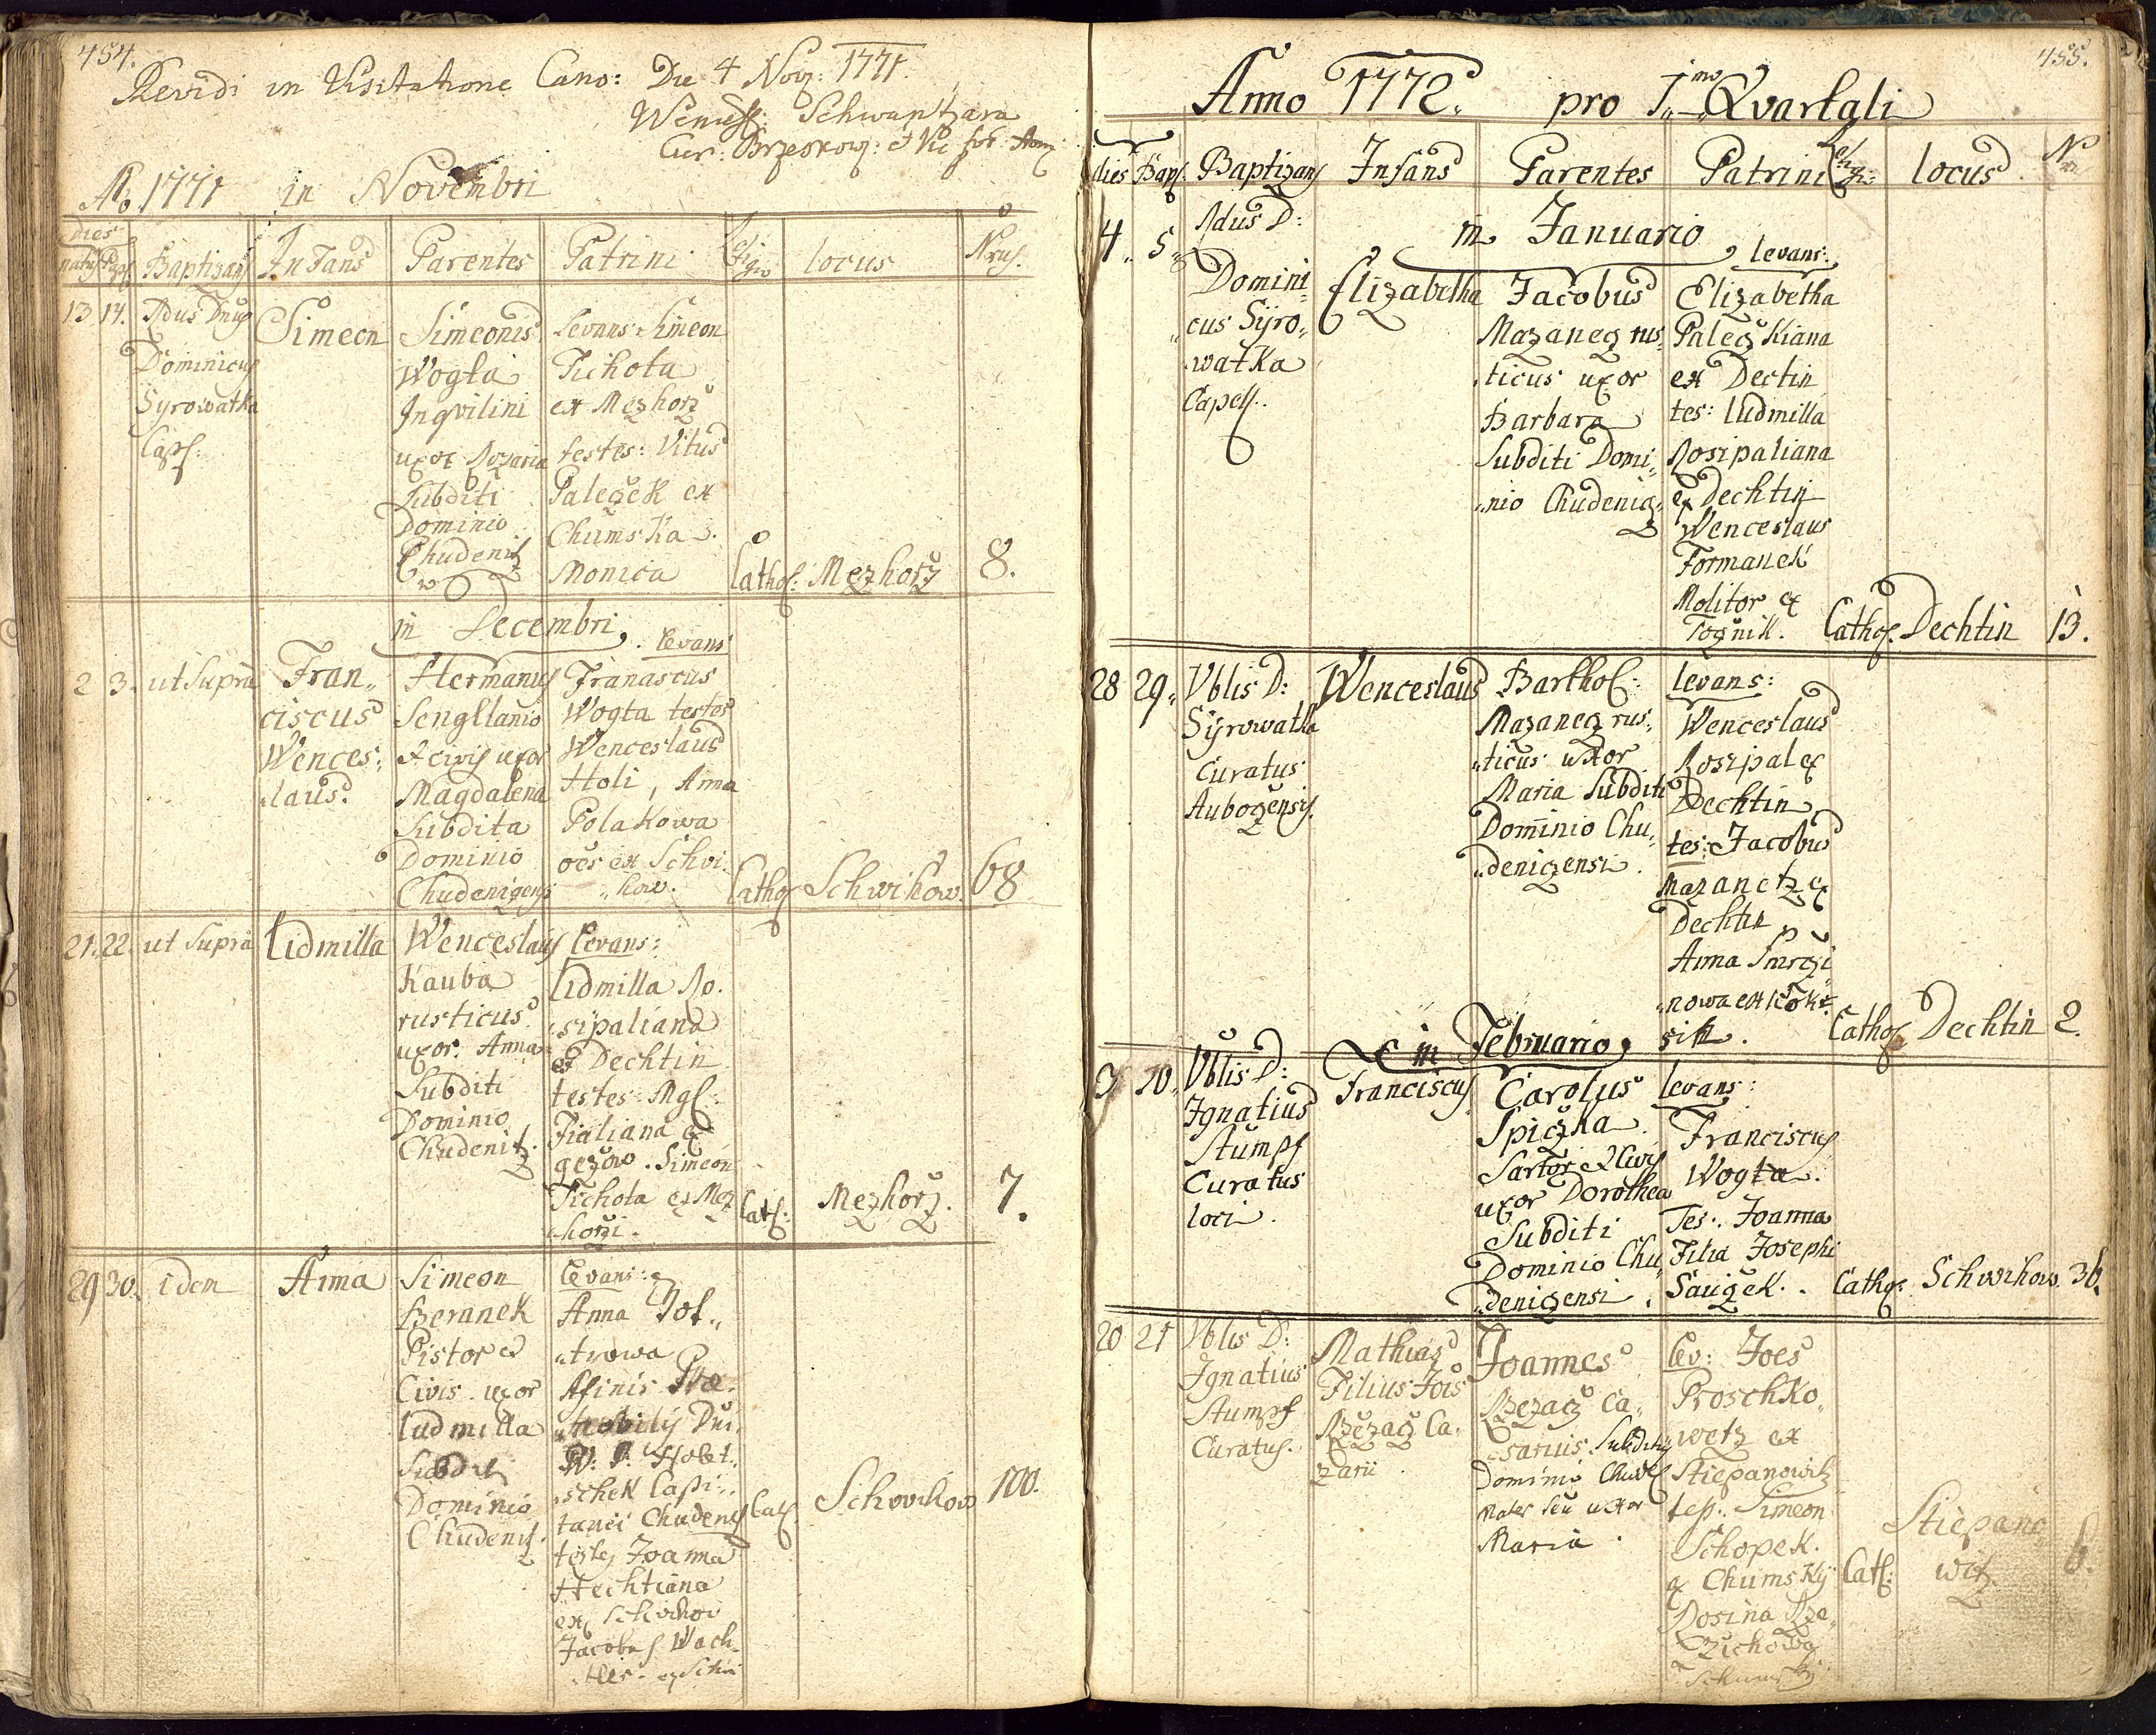 454.
Revidi in Visitatione Cano: Die 4 Nov: 1771.
Schwantzara
Cur: Brzeskow: et Vic
Ao 1771 in Novembri
dies
natus Bapt. Baptizans Infans Parentes Patrini Religio locus Nrus.
13 14. Rdus Dnus
Dominicus
Syrowatka
Cap:
Simeon
Simeonis
Wogta
Inqvilini
uxor Rozaria
Subditi
Dominio
Chudenitz
Levans Simeon
Tichota
ex Mezhorz
testes: Vitus
Paleczek ex
Chumska.
Monica
Cathol: Mezhorz 8.
in Decembri
2 3. ut Supra
Fran„
ciscus
Wences„
„laus.
Hermanus
Senglianio
et civis uxor
Magdalena
Subdita
Dominio
Chudenizensi
Levans
Franciscus
Wogta testes
Wenceslaus
Holi, Anna
Polakowa
oes ex Schvi„
„how.
Cathol Schwihow. 68
21. 22. ut Supra Lidmilla
Wenceslaus
Kauba
rusticus
uxor. Anna
Subditi
Dominio
Chudenitz.
Levans:
Lidmilla Ro„
„sipaliana
ex Dechtin
testes: Mgl:
Fialiana ex
gezow. Simeon
Tichota ex Mez
„horzi.
Cath: Mezhorz. 7.
29 30. idem Anna
Simeon
Beranek
Pistor et
Civis uxor
Ludmilla
Subditi
Dominio
Chudeniz.
Levans:
Anna Rot„
„trowa
Afinis Prae„
„nobilis Dni.
W: P. Hobt„
„schek Capi„
tanei Chudeniz
testes Joanna
Hechtiana
ex Schvihow
Jacobus Wach„
„tler. ex Schvi
Cath. Schwihow 100.
455.
Anno 1772. pro I.mo Qvartali
dies Bapt. Baptizans Infans Parentes Patrini Religio: locus Nrus
in Januario
4. 5. Rdus D:
Domini„
„cus Syro„
„watka
Capell.
Elizabetha
Jacobus
Mazanez rus„
„ticus uxor
Barbara
Subditi Domi„
„nio Chudeniz„
levans:
Elizabetha
Paleczkiana
ex Dectin
tes: Ludmilla
Rosipaliana
ex Dechtin
Wenceslaus
Formanek
Molitor ex
Tognik.
Cathol. Dechtin 13.
28 29. Vblis D:
Syrowatka
Curatus
Aubozensis.
Wenceslaus
Barthol:
Mazanez rus„
„ticus uxor
Maria Subditi
Dominio Chu„
„denizensi.
levans:
Wenceslaus
Rosipal ex
Dechtin
tes: Jacobus
Mazanetz ex
Dechtin,
Anna Smrczi
„nowa ex Kok„
sik.
Cathol. Dechtin 2.
in Februario
9 10. Vblis D:
Ignatius
Stumpf
Curatus
loci.
Franciscus
Carolus
Spiczka
Sartor et Civis
uxor Dorothea
Subditi
Dominio Chu„
„denizensi.
levans:
Franciscus
Wogta.
Tes: Joanna
Filia Josephi
Sauczek.
Cathol: Schwihow. 36.
20 21 Vblis D:
Ignatius
Stumpf
Curatus.
Mathias
Filius Jois
Rzezacz Ca„
„zarii.
Joannes
Rzezacz Ca„
„sarius. Subditus
Dominio Chudez
Mater seu uxor
Maria.
Lev: Joes
Proschko„
wetz ex
Stiepanowitz
tes: Simeon
Schopek.
ex Chumsky
Rosina Rze„
„zichowa
Chumsky
Cath: Stiepano
witz 6.